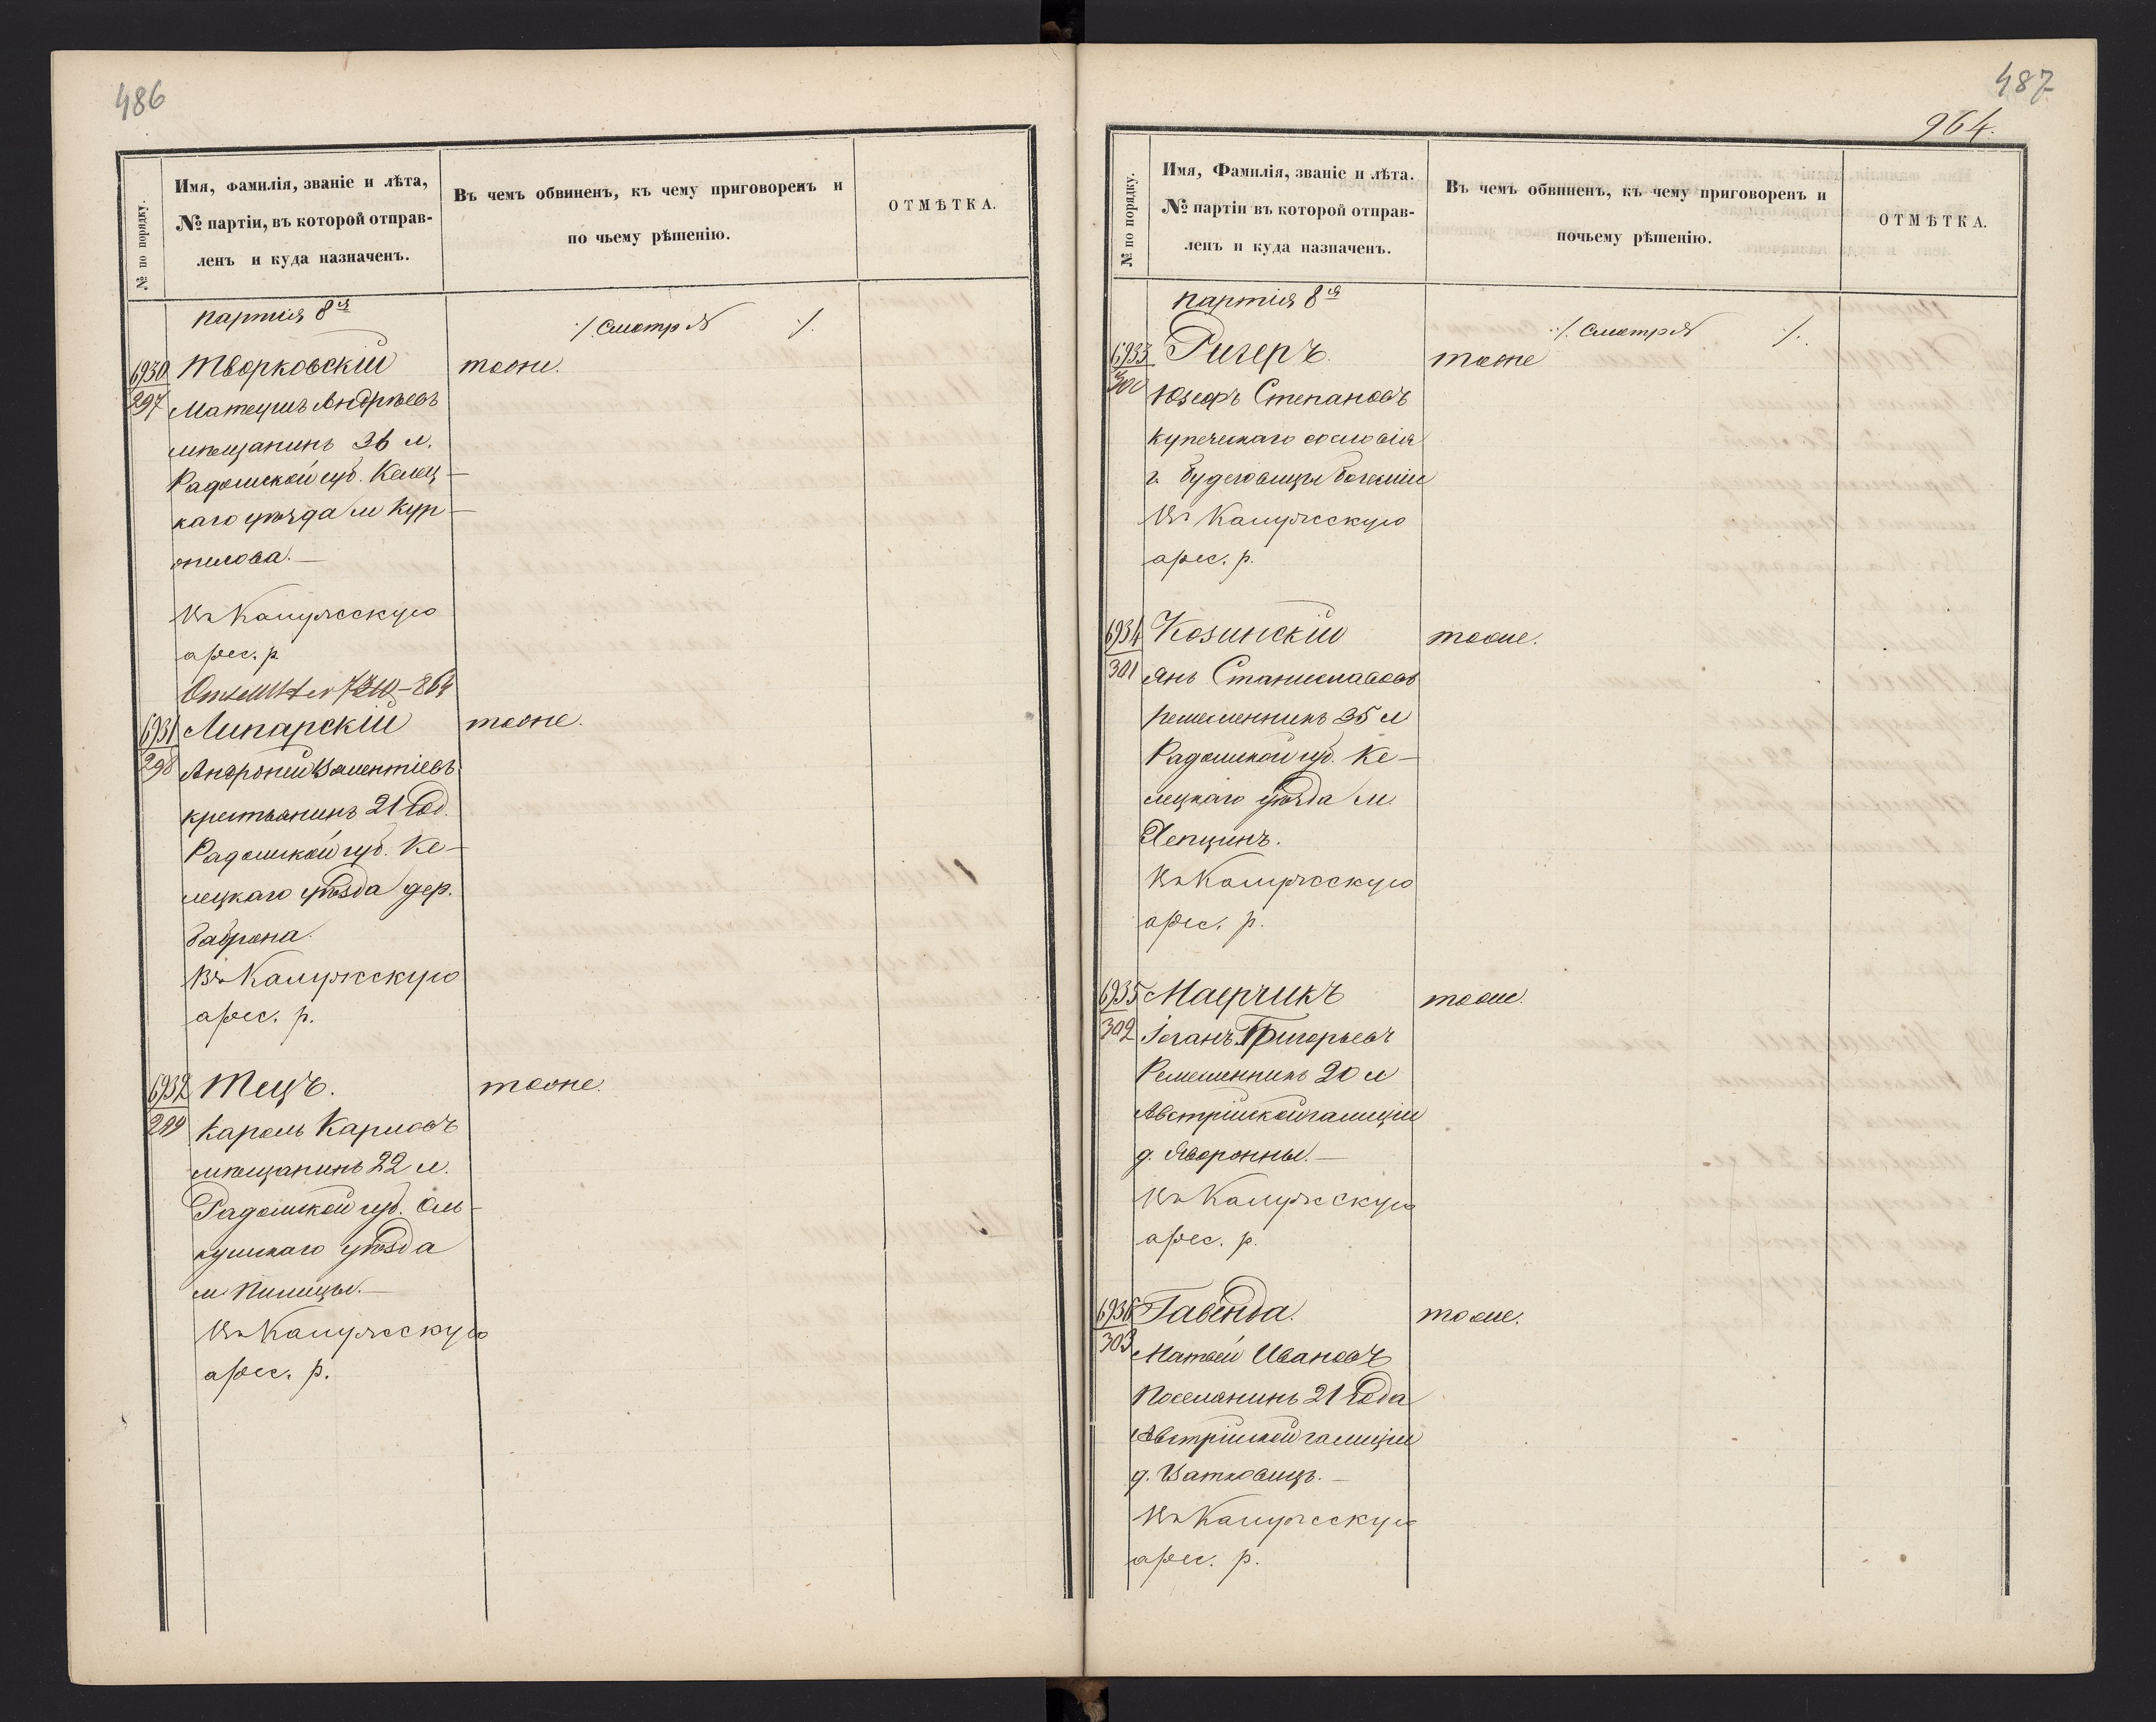 486
№ по порядку.
Имя, Фамилія, званіе и лѣта,
№ партіи, въ которой отправ-
ленъ и куда назначенъ.
Въ чемъ обвиненъ, къ чему приговоренъ и
по чьему рѣшенію.
ОТМѢТКА.
партія 8я
·/. Смотр № ·/.
6930
297
Творковскій
тоже.
Матеушъ Андрѣевъ
мѣщанинъ 36 л.
Радомской губ. Келец-
каго уѣзда м
Въ Калужскую
арес. р
6931
298
Липарскій
тоже.
Андроній Валентіевъ
крестьянинъ 21 год.
Радомской губ. Ке-
лецкаго уѣзда дер.
Въ Калужскую
арес. р.
6932
299
Тецъ.
тоже.
Кароль Карловъ
мѣщанинъ 22 л.
Радомской губ. Оль-
кушкаго уѣзда
м Пилицы.—
Въ Калужскую
арес. р.
487
964.
№ по порядку.
Имя, Фамилія, званіе и лѣта.
№ партіи въ которой отправ-
ленъ и куда назначенъ.
Въ чемъ обвиненъ, къ чему приговоренъ и
почьему рѣшенію.
ОТМѢТКА.
партія 8я
·/. Смотр № ·/.
6933
300
Ригеръ.
тоже
Юзефъ Степановъ
купеческаго сословія
г. Будеговицы Богеміи
Въ Калужскую
арес. р.
6934
301
Козинскій
тоже.
Янъ Станиславовъ
ремесленникъ 35 л
Радомской губ. Ке-
лецкаго уѣзда м.
Въ Калужскую
арес. р.
6935
302
Маерчикъ
тоже.
Іоганъ Григорьевъ
Ремесленникъ 20 л
Австрійской галиціи
д. Яворонны.—
Въ Калужскую
арес. р.
6936
303
Гавенда.
тоже.
Матвей Ивановъ
Поселянинъ 21 года
Австрійской галиціи
д. Ватковицъ.—
Въ Калужскую
арес. р.